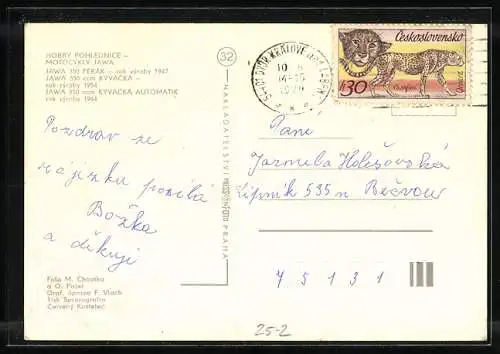 HOBBY POHLEDNICE –
MOTOCYKLY JAWA
JAWA 250 PÉRÁK – rok výroby 1947
JAWA 350 ccm KÝVAČKA –
rok výroby 1954
JAWA 350 ccm KÝVAČKA AUTOMATIK
rok výroby 1964
Pozdrav ze
zájezdu posílá
Božka
a děkuji
Foto M. Chvátko
a O. Pajer
Graf. úprava F. Vlach
Tisk Severografia
Červený Kostelec
32
NAKLADATELSTVÍ PRAHA
DVŮR KRÁLOVÉ NAD LABEM
Československo
30
Paní
Jarmela Holešovská
Lipník 535 n. Bečvou
75131
25-2